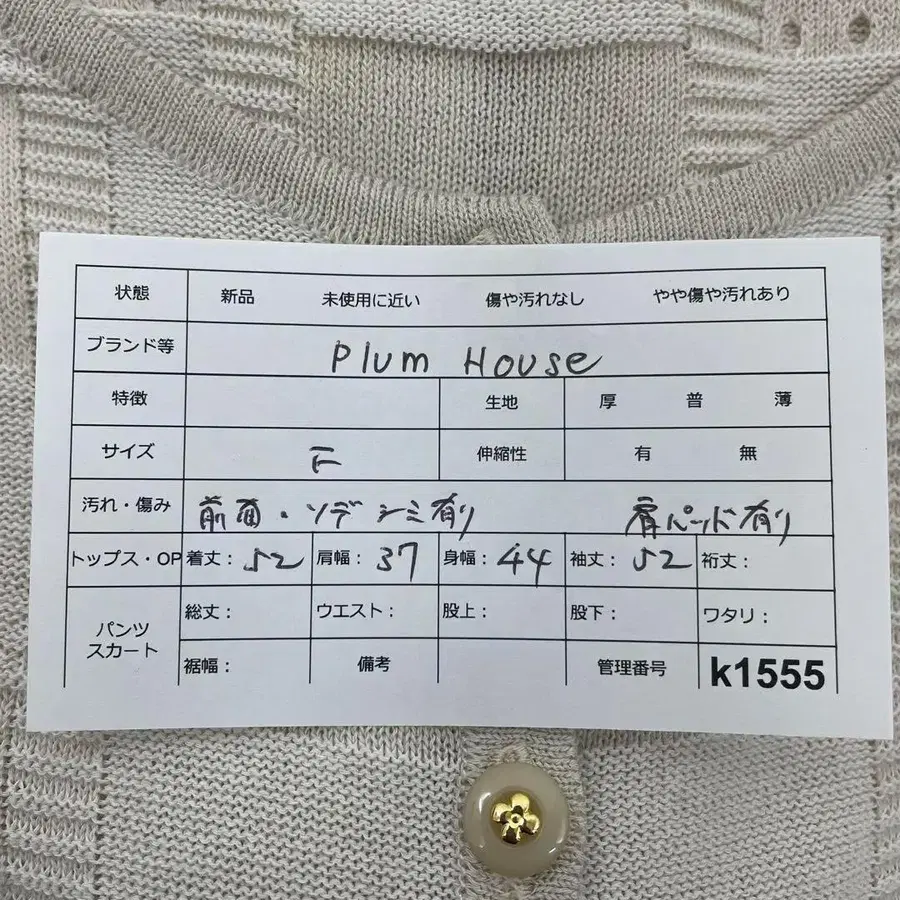 状態 新品 未使用に近い 傷や汚れなし やや傷や汚れあり
ブランド等 Plum House
特徴 生地 厚 普 薄
サイズ F 伸縮性 有 無
汚れ・傷み 前面・ソデ シミ有り 肩パッド有り
トップス・OP 着丈：52 肩幅：37 身幅：44 袖丈：52 裄丈：
パンツ 総丈： ウエスト： 股上： 股下： ワタリ：
スカート 裾幅： 備考 管理番号 k1555